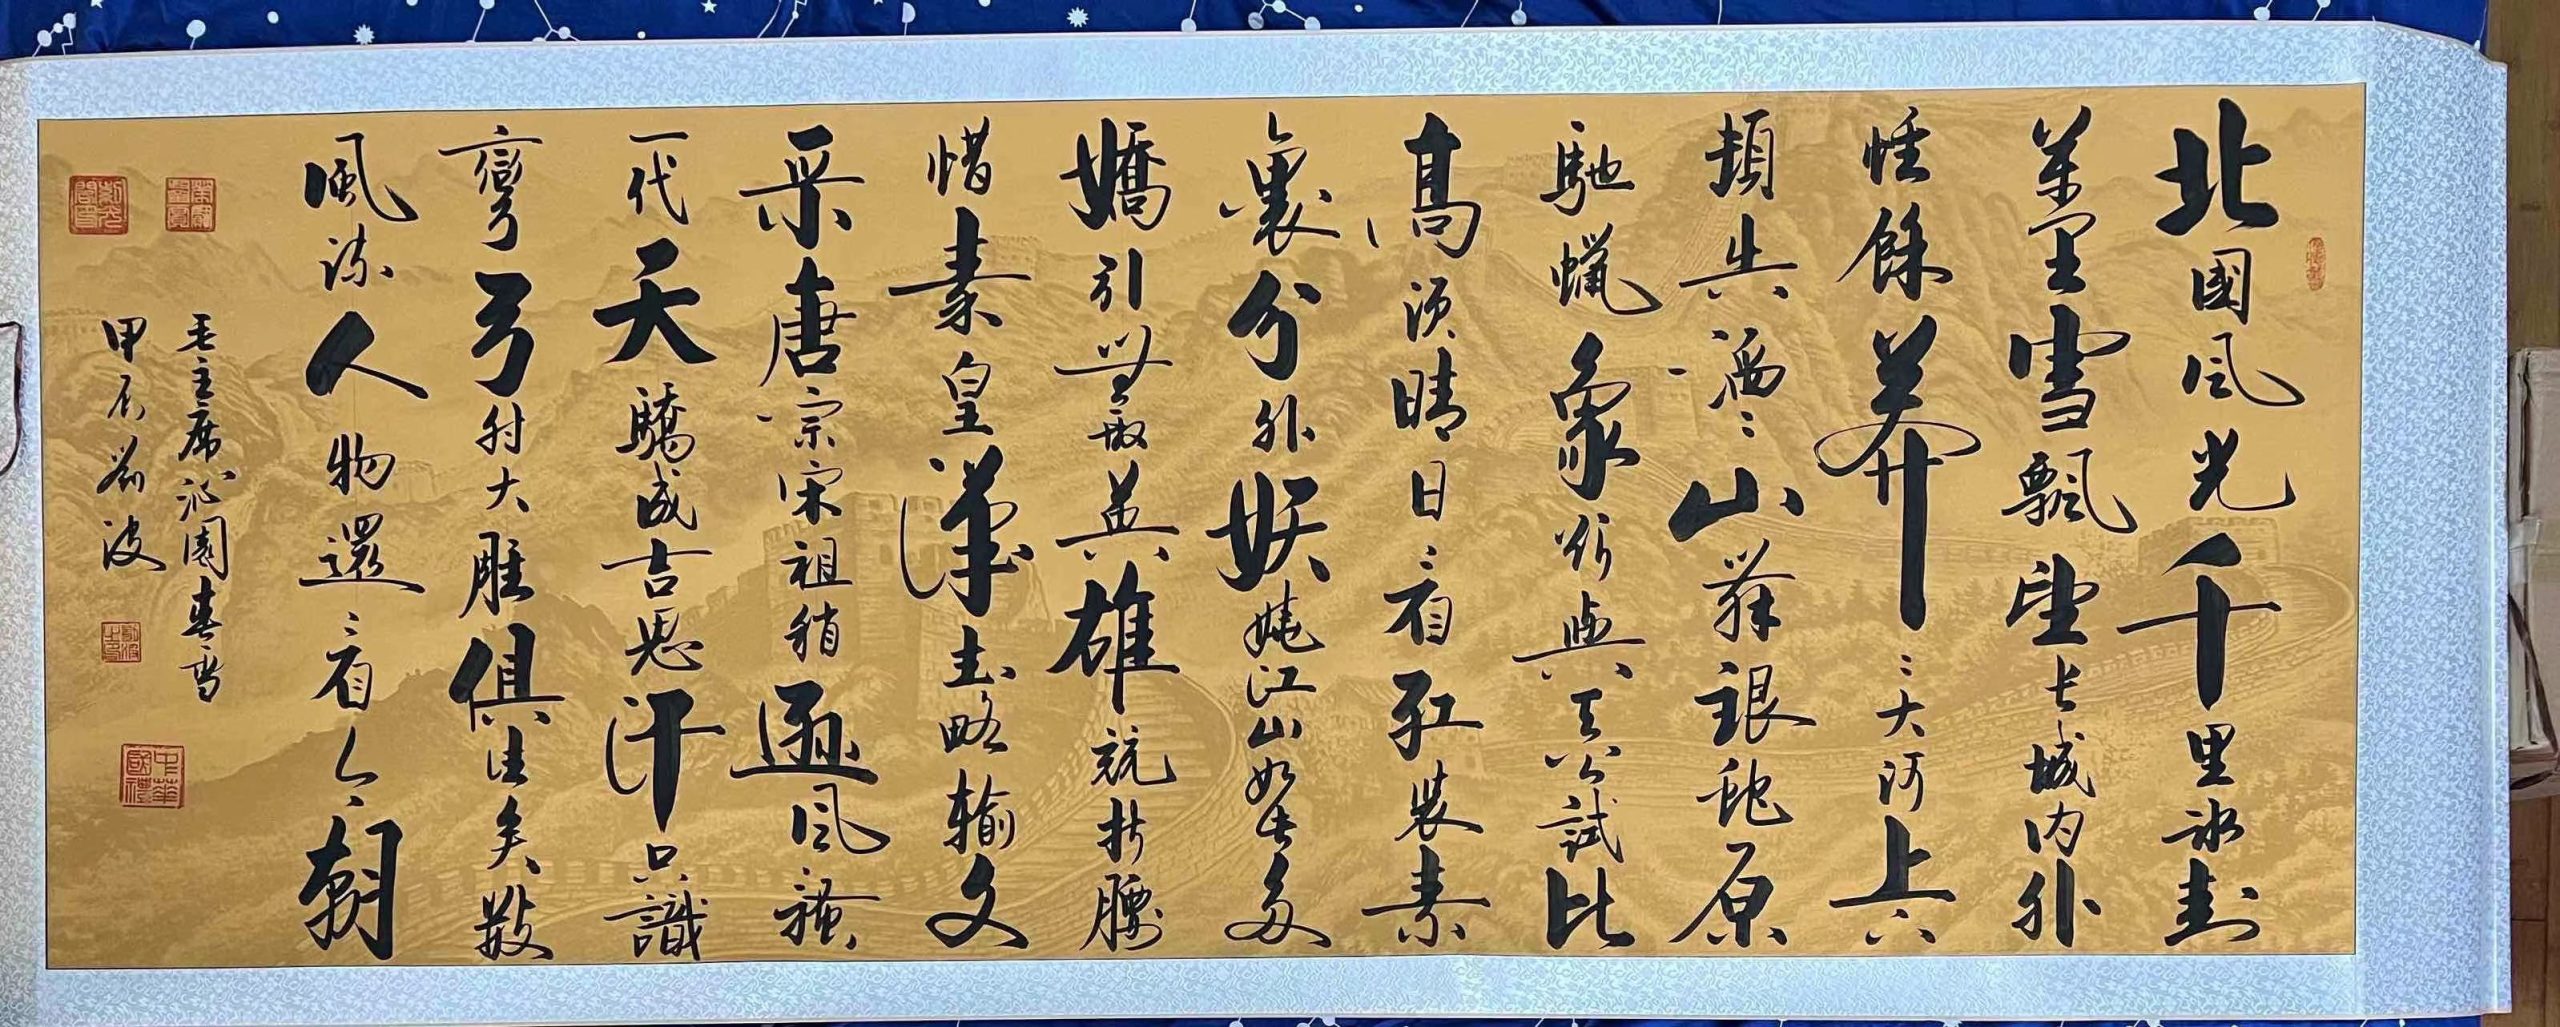 北國风光千里冰封
萬里雪飄望长城内外
惟餘莽〻大河上下
頓失滔〻山舞银蛇原
馳蠟象欲與天公試比
高须晴日看红装素
裹分外妖娆江山如此多
嬌引無數英雄競折腰
惜秦皇漢武略輸文
采唐宗宋祖稍遜风骚
一代天驕成吉思汗只識
彎弓射大雕俱往矣數
風流人物還看今朝
毛主席沁園春雪
甲辰劉波
中華國禮